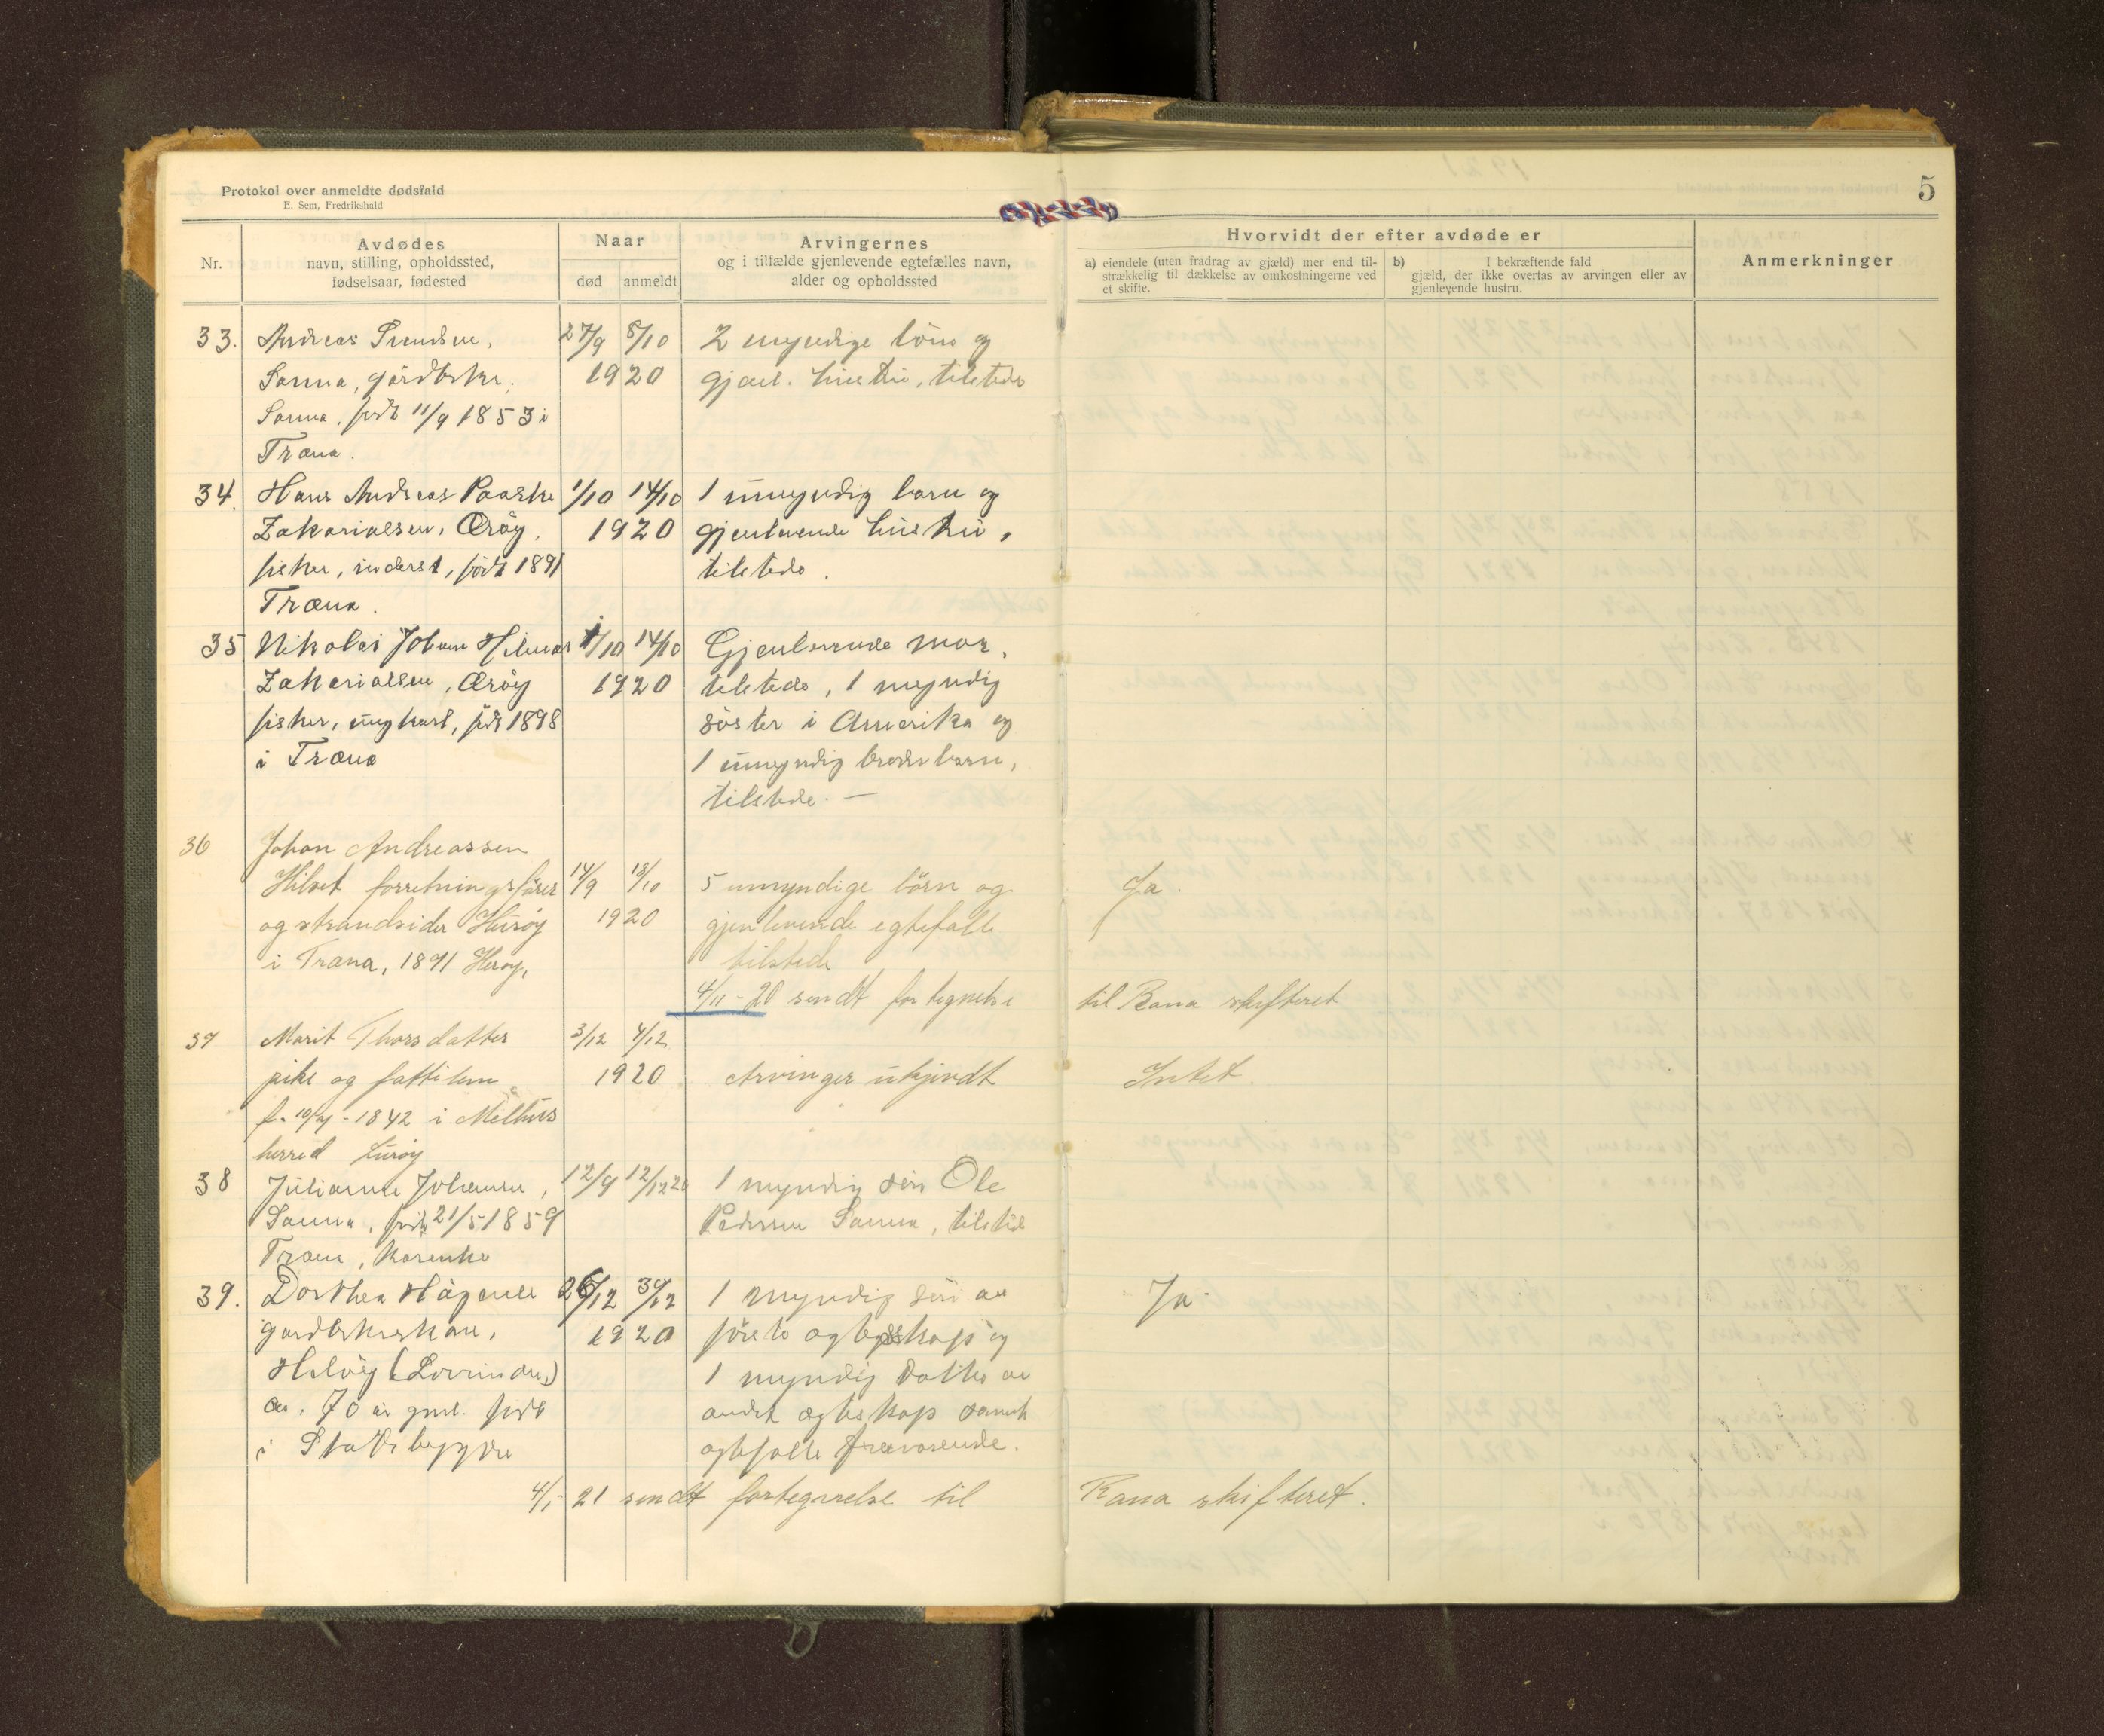 Protokol over anmeldte dødsfald
E. Sem, Fredrikshald
5
Nr.
Avdødes
navn, stilling, opholdssted,
fødselsaar, fødested
Naar
død anmeldt
Arvingernes
og i tilfælde gjenlevende egtefælles navn,
alder og opholdssted
Hvorvidt der efter avdøde er
a) eiendele (uten fradrag av gjæld) mer end til-
strækkelig til dækkelse av omkostningerne ved
et skifte.
b) I bekræftende fald
gjæld, der ikke overtas av arvingen eller av
gjenlevende hustru.
Anmerkninger
33. Andreas Svendsen, 27/9 8/10 2 myndige börn og
Sanna, gårdbrker, 1920 gjenl. hustru, tilstede
Sanna, født 11/9 1853 i
Træna.
34. Hans Andreas Paaske 1/10 14/10 1 umyndig barn og
Zakariassen, Ærøy, 1920 gjenlevende hustru,
fisker, inderst, født 1891 tilstede.
Træna.
35 Nikolai Johan Hilmar 1/10 14/10 Gjenlevende mor,
Zakariassen, Ærøy 1920 tilstede, 1 myndig
fisker, ungkarl, født 1898 söster i Amerika og
i Træna 1 umyndig broderbarn,
tilstede. —
36 Johan Andreassen
Hilset forretningsfører 14/9 18/10 5 umyndige börn og Ja.
og strandsider Husøy 1920 gjenlevende egtefælle
i Træna, 1891 Herøy, tilstede
4/11-20 sendt fortegnelse til Rana skifteret
37 Marit Thorsdatter 3/12 4/12
pike og fattilem 1920 Arvinger ukjendt Intet.
f. 10/4-1842 i Melhus
herred Lurøy
38 Julianna Johansen, 12/9 12/12 20 1 myndig sön Ole
Sanna, født 21/5 1859 Pedersen Sanna, tilsted
Træna, kårenke
39. Dorthea Hågensen 26/12 30/12 1 myndig sön av Ja.
gardbrkerskone, 1920 førete ægteskap og
Heløy (Lovunden) 1 myndig datter av
ca. 70 år gml. født andet ægteskap samt
i Stadsbygden egtefælle fraværende.
4/1-21 sendt fortegnelse til Rana skifteret.